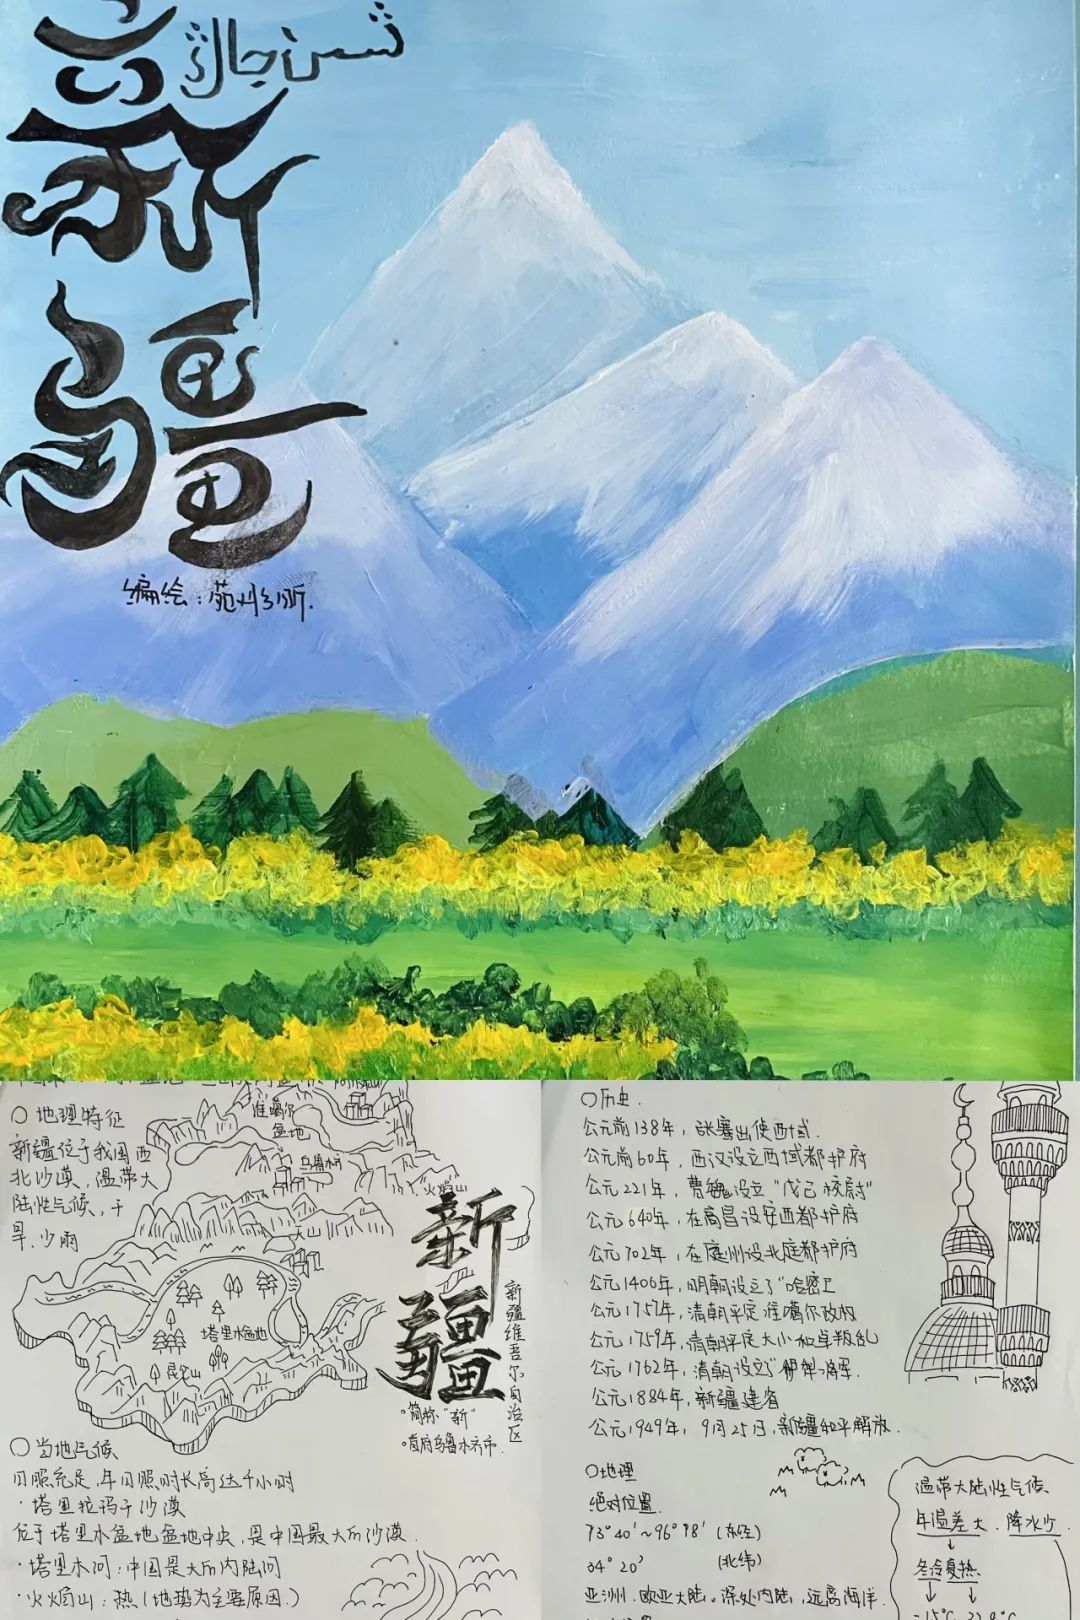 新疆
شىنجاڭ
编绘：苑
准噶尔
盆地
乌鲁木齐
火焰山
天山
塔里木盆地
昆仑山
○ 地理特征
新疆位于我国西
北沙漠，温带大
陆性气候，干
旱、少雨
新疆
新疆维吾尔自治区
·简称“新”
·首府乌鲁木齐市.
○ 当地气候
日照充足，年日照时长高达千小时
·塔里拉玛干沙漠
位于塔里木盆地盆地中央，是中国最大的沙漠.
·塔里木河：中国是大的内陆河
·火焰山：热（地势为主要原因.）
○历史.
公元前138年，张骞出使西域.
公元前60年，西汉设立西域都护府
公元221年，曹魏设立“戊己校尉”
公元640年，在高昌设安西都护府
公元702年，在庭州设北庭都护府
公元1406年，明朝设立了“哈密卫
公元1757年，清朝平定准噶尔政权
公元1759年，清朝平定大小和卓叛乱
公元1762年，清朝设立“伊犁将军.
公元1884年，新疆建省
公元1949年，9月25日，新疆和平解放.
○地理
绝对位置.
73°40′~96°18′（东经）
34°20′（北纬）
亚洲. 欧亚大陆。深处内陆，远离海洋.
温带大陆性气候.
年温差大. 降水少.
冬冷夏热.
-15°C